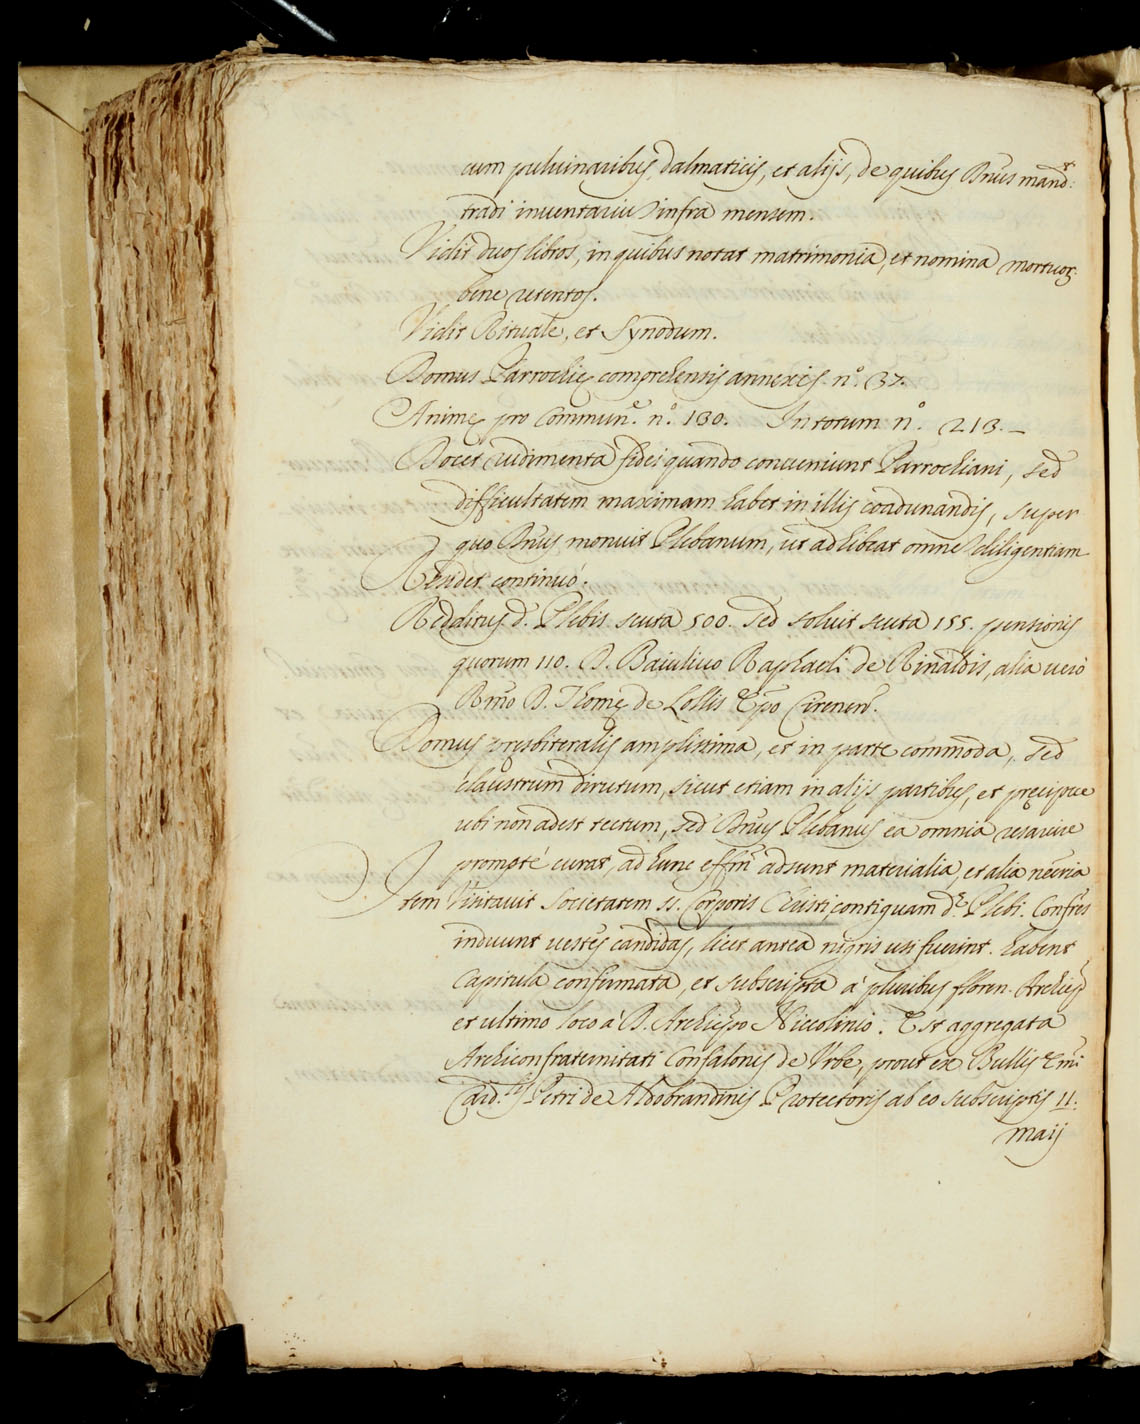 cum puluinaribus, dalmaticis, et alijs, de quibus Dnus mand.t
tradi inuentariu infra mensem.
Vidit duos libros, in quibus notat matrimonia, et nomina mortuor.
bene retentos.
Vidit Rituale, et Synodum.
Domus Parrochię comprehensis annexis n.o 37.
Animę pro Commun.e n.o 130. In totum n.o 213.
Docet rudimenta fidei quando conueniunt Parrochiani, sed
difficultatem maximam habet in illis coadunandis, super
quo Dnus monuit Plebanum, ut adhibeat omne diligentiam
Residet continuò.
Redditus d. Plebis scuta 500. sed soluit scuta 155. pensionis
quorum 110. D. Baiuliuo Raphaeli de Rinaldis, alia uerò
Rmo D. Thomę de Lollis Epo Cirenen.
Domus presbiteralis amplissima, et in parte commoda, sed
claustrum dirutum, sicut etiam in alijs partibus, et pręcipue
ubi non adest tectum, sed Dnus Plebanus ea omnia resarcire
prompté curat, ad hunc effm adsunt materialia, et alia necria
Item Visitauit Societatem ss. Corporis Christi contiguam d.e Plebi. Confres
induunt uestes candidas, licet antea nigris usi fuerint. habent
Capitula confirmata, et subscripta à pluribus floren. Archiep
et ultimo loco à D. Archiepo Niccolinio. Est aggregata
Archiconfraternitati Confalonis de Vrbe, prout ex Bullis Emi
Card.lis Petri de Aldobrandinis Protectoris ab eo subscriptis 11.
Maij